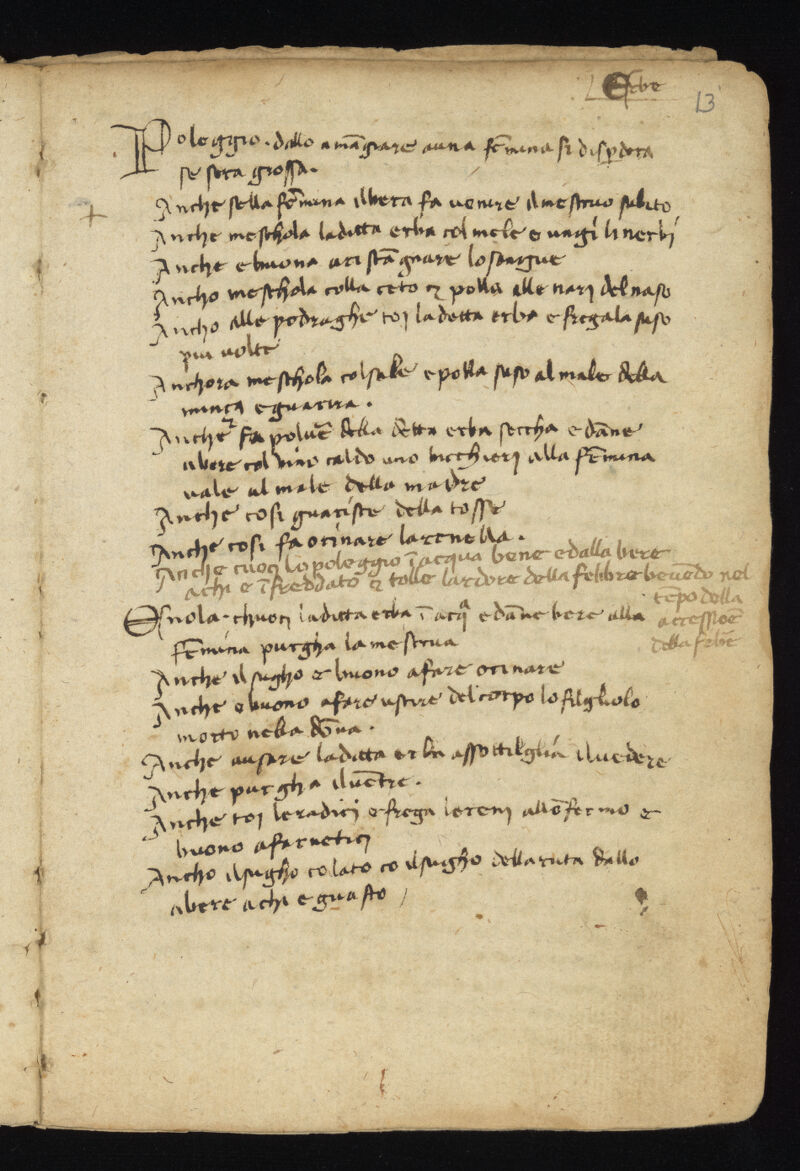 Erbe
13
Poleggio. dallo a mãgiare a una fẽmina si disperdera
se sera grossa.
Anche se lla fẽmina il bera fa venire il mestruo subito
Anche meschola la ditta erba col mele e ungi li nerbi
Anche e buona a ristãgnare lo sangue
Ancho meschola colla ceto & polla alle nari del naso
Ancho alle podraghe toi la detta erba e fregala suso
piu volte
Anchora meschola col sale e polla suso al male della
e guarira.
Anche fa polvẽ della detta erba seccha e dãne
a bere col vino caldo uno bicchieri alla fẽmina
vale al male della madre
Anche cosi guarisce della tosse
Anche cosi fa orinare la renella.
Anche cuoci lo poleggio ĩ acqua bene e dalla bere
a chi e ĩfreddato & tolle lardore della febbre bevẽdo nel
tẽpo della
accessiõe
della febre
Esuola. chuoci la ditta erba ĩ acq̃ e dãne bere alla
fẽmina purgha la mestrua
Anche il sugho e buono a fare orinare
Anche e buono a fare uscire del corpo lo filgliolo
morto nella dõna.
Anche a usare la ditta erba assottilglia il vedere
Anche purgha il vẽtre.
Anche toi le radici e frega le reni allo ĩfermo e
buono a farnetici
Ancho il sugho colato co il sugho della ruta dallo
a bere a chi e guasto